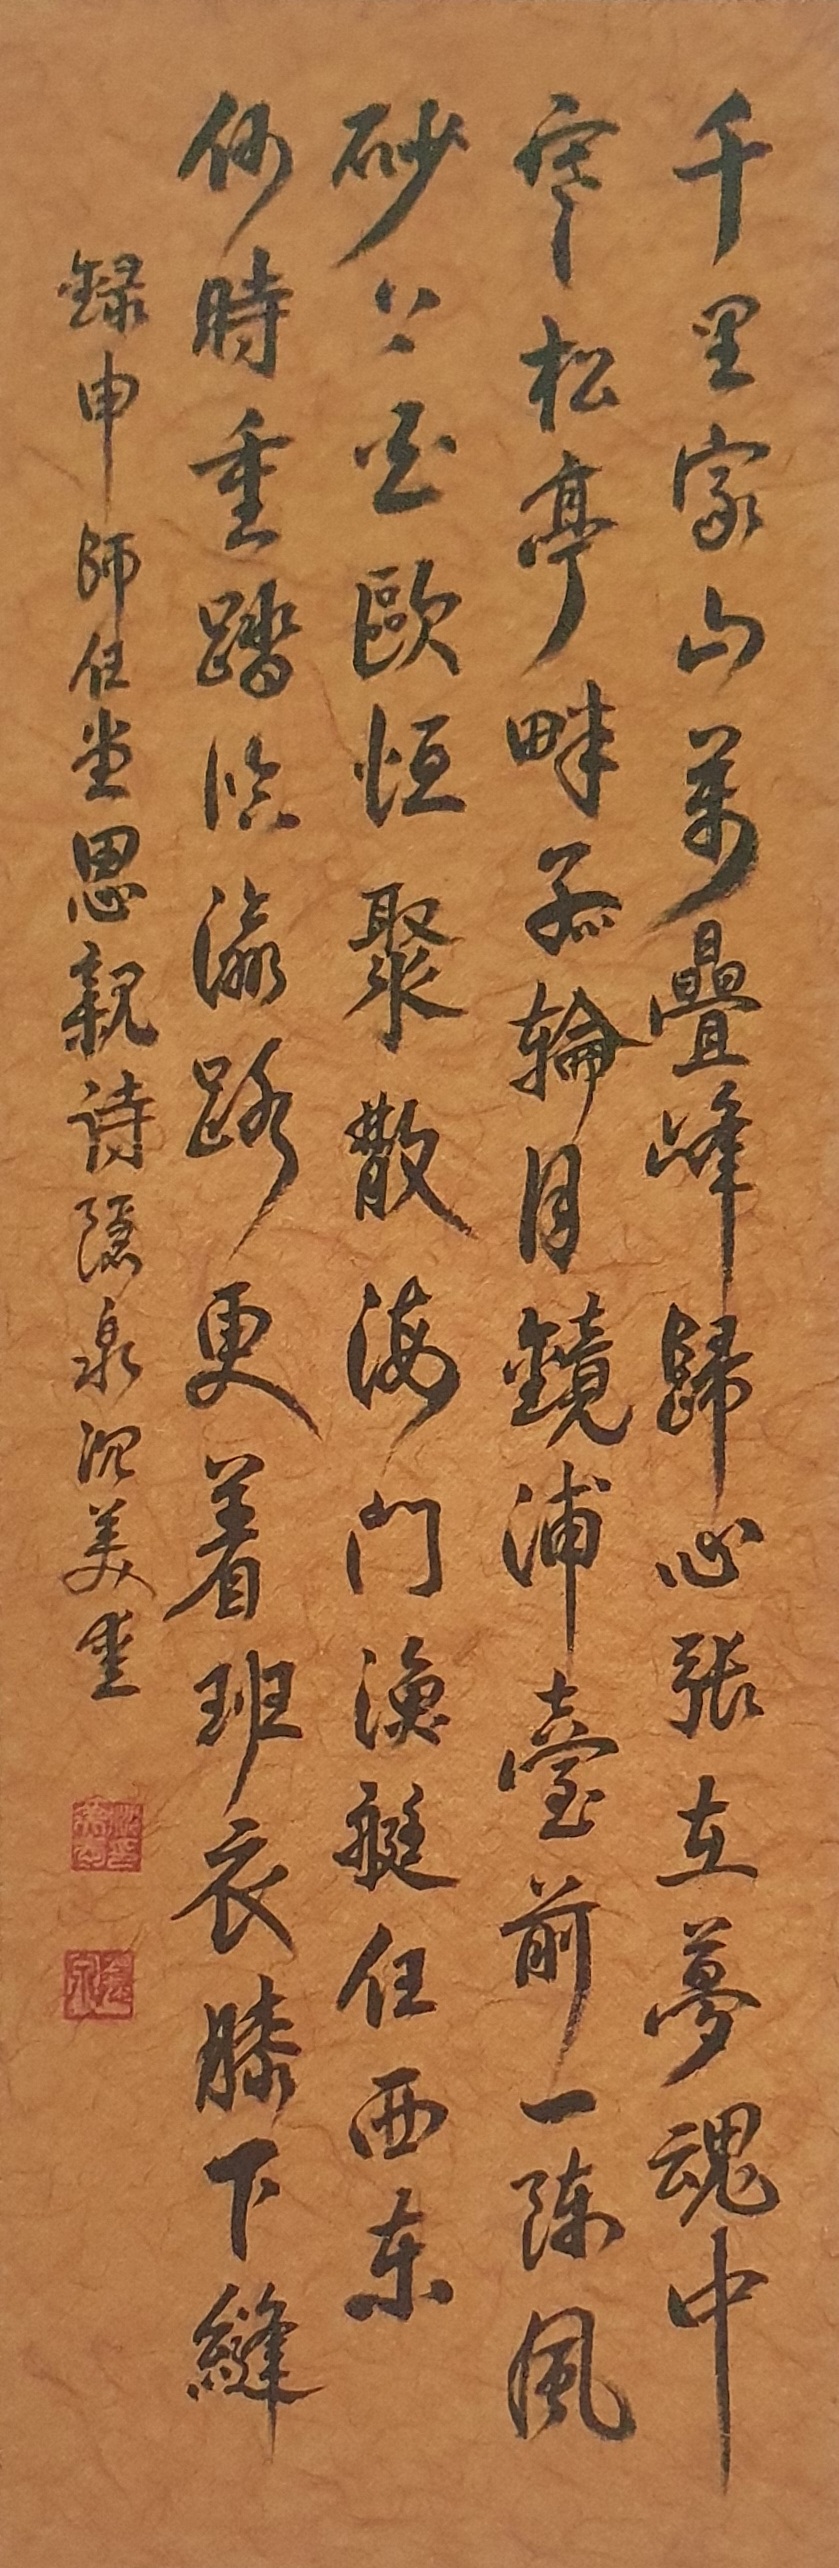 千里家山萬疊峰歸心張在夢魂中
寒松亭畔孤輪月鏡浦臺前一陣風
砂上白鷗恒聚散海門漁艇任西東
何時重踏臨瀛路更着班衣膝下縫
録申師任堂思親诗隱泉沈美